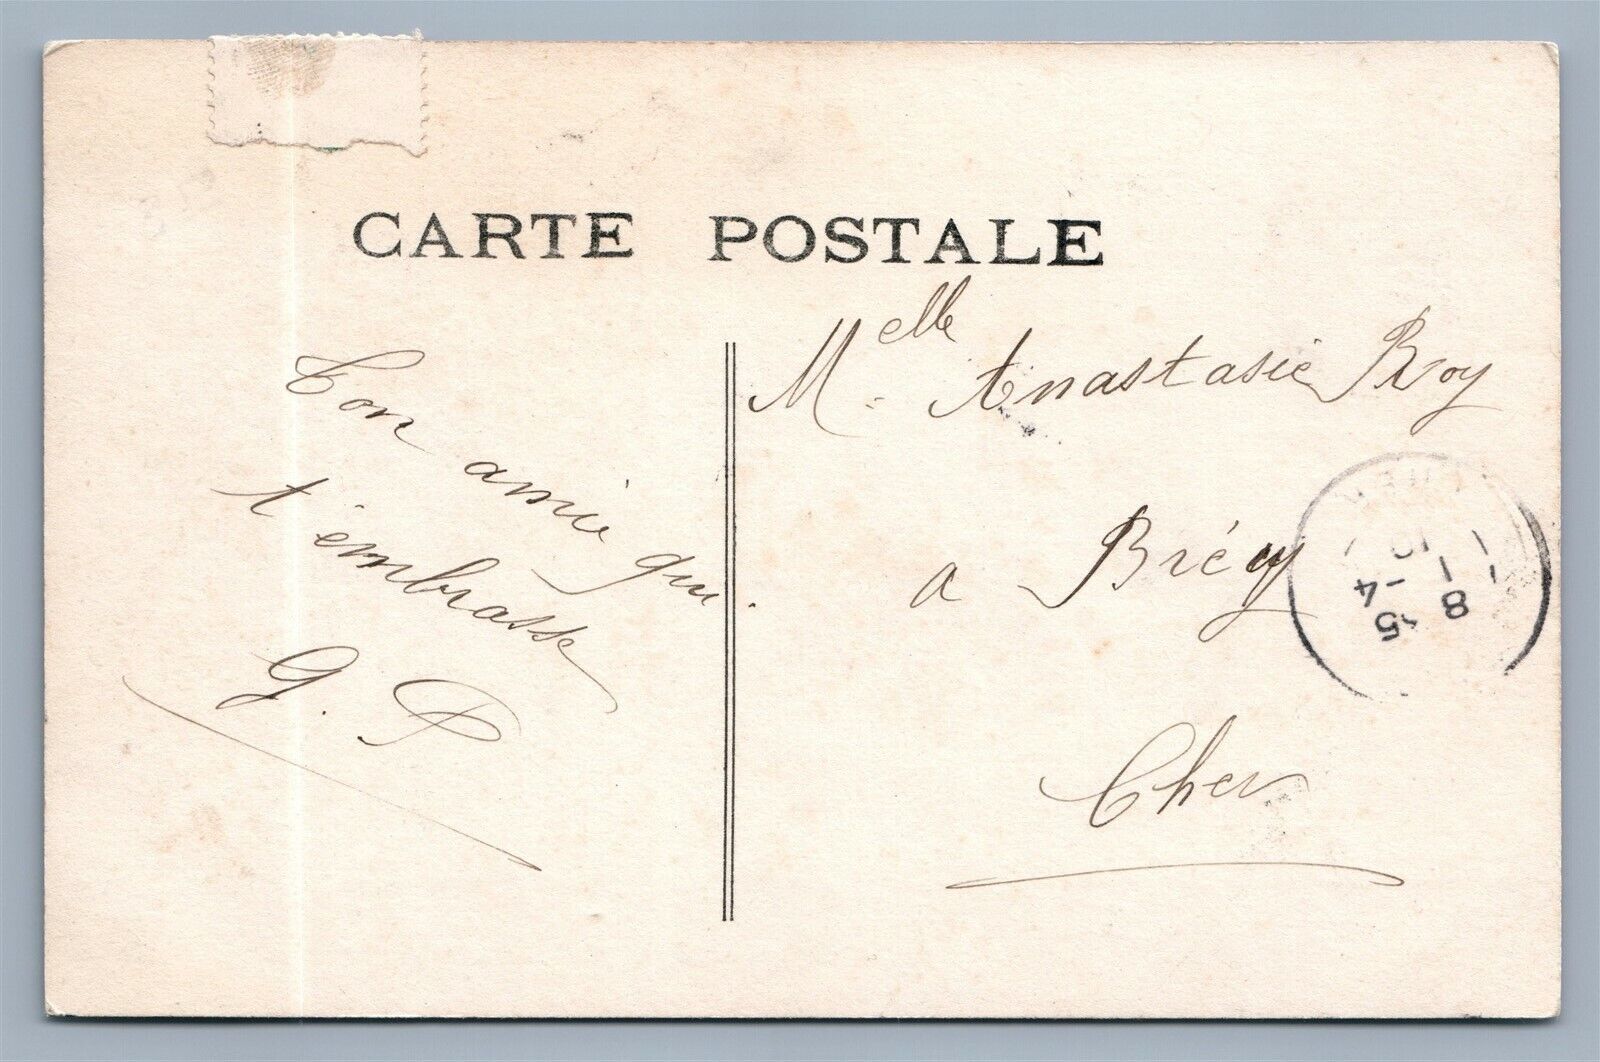 CARTE POSTALE
Ton amie qui
t'embrasse
G. P
Melle Anastasie Roy
a Brécy
Cher
8 15
1 -4
10